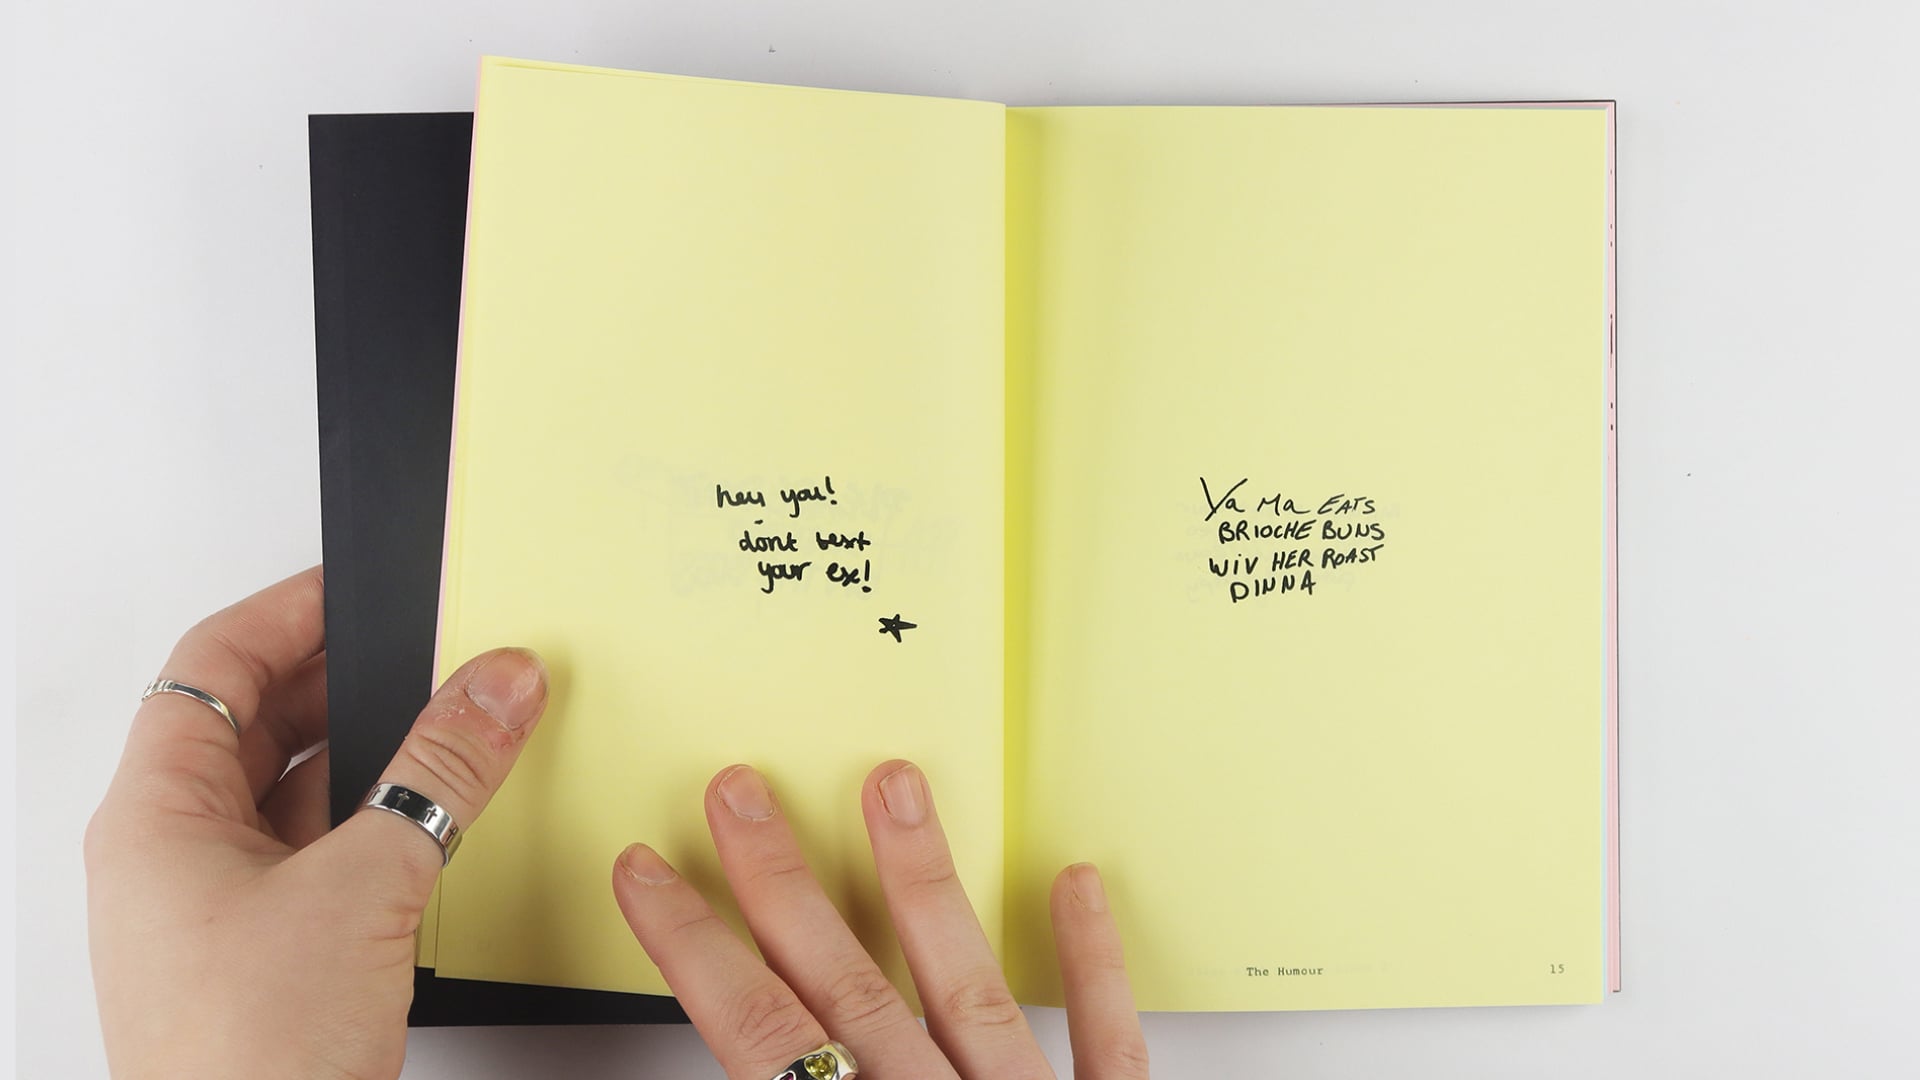 hey you!
dont text
your ex!
Ya Ma EATS
BRIOCHE BUNS
WIV HER ROAST
DINNA
The Humour
15